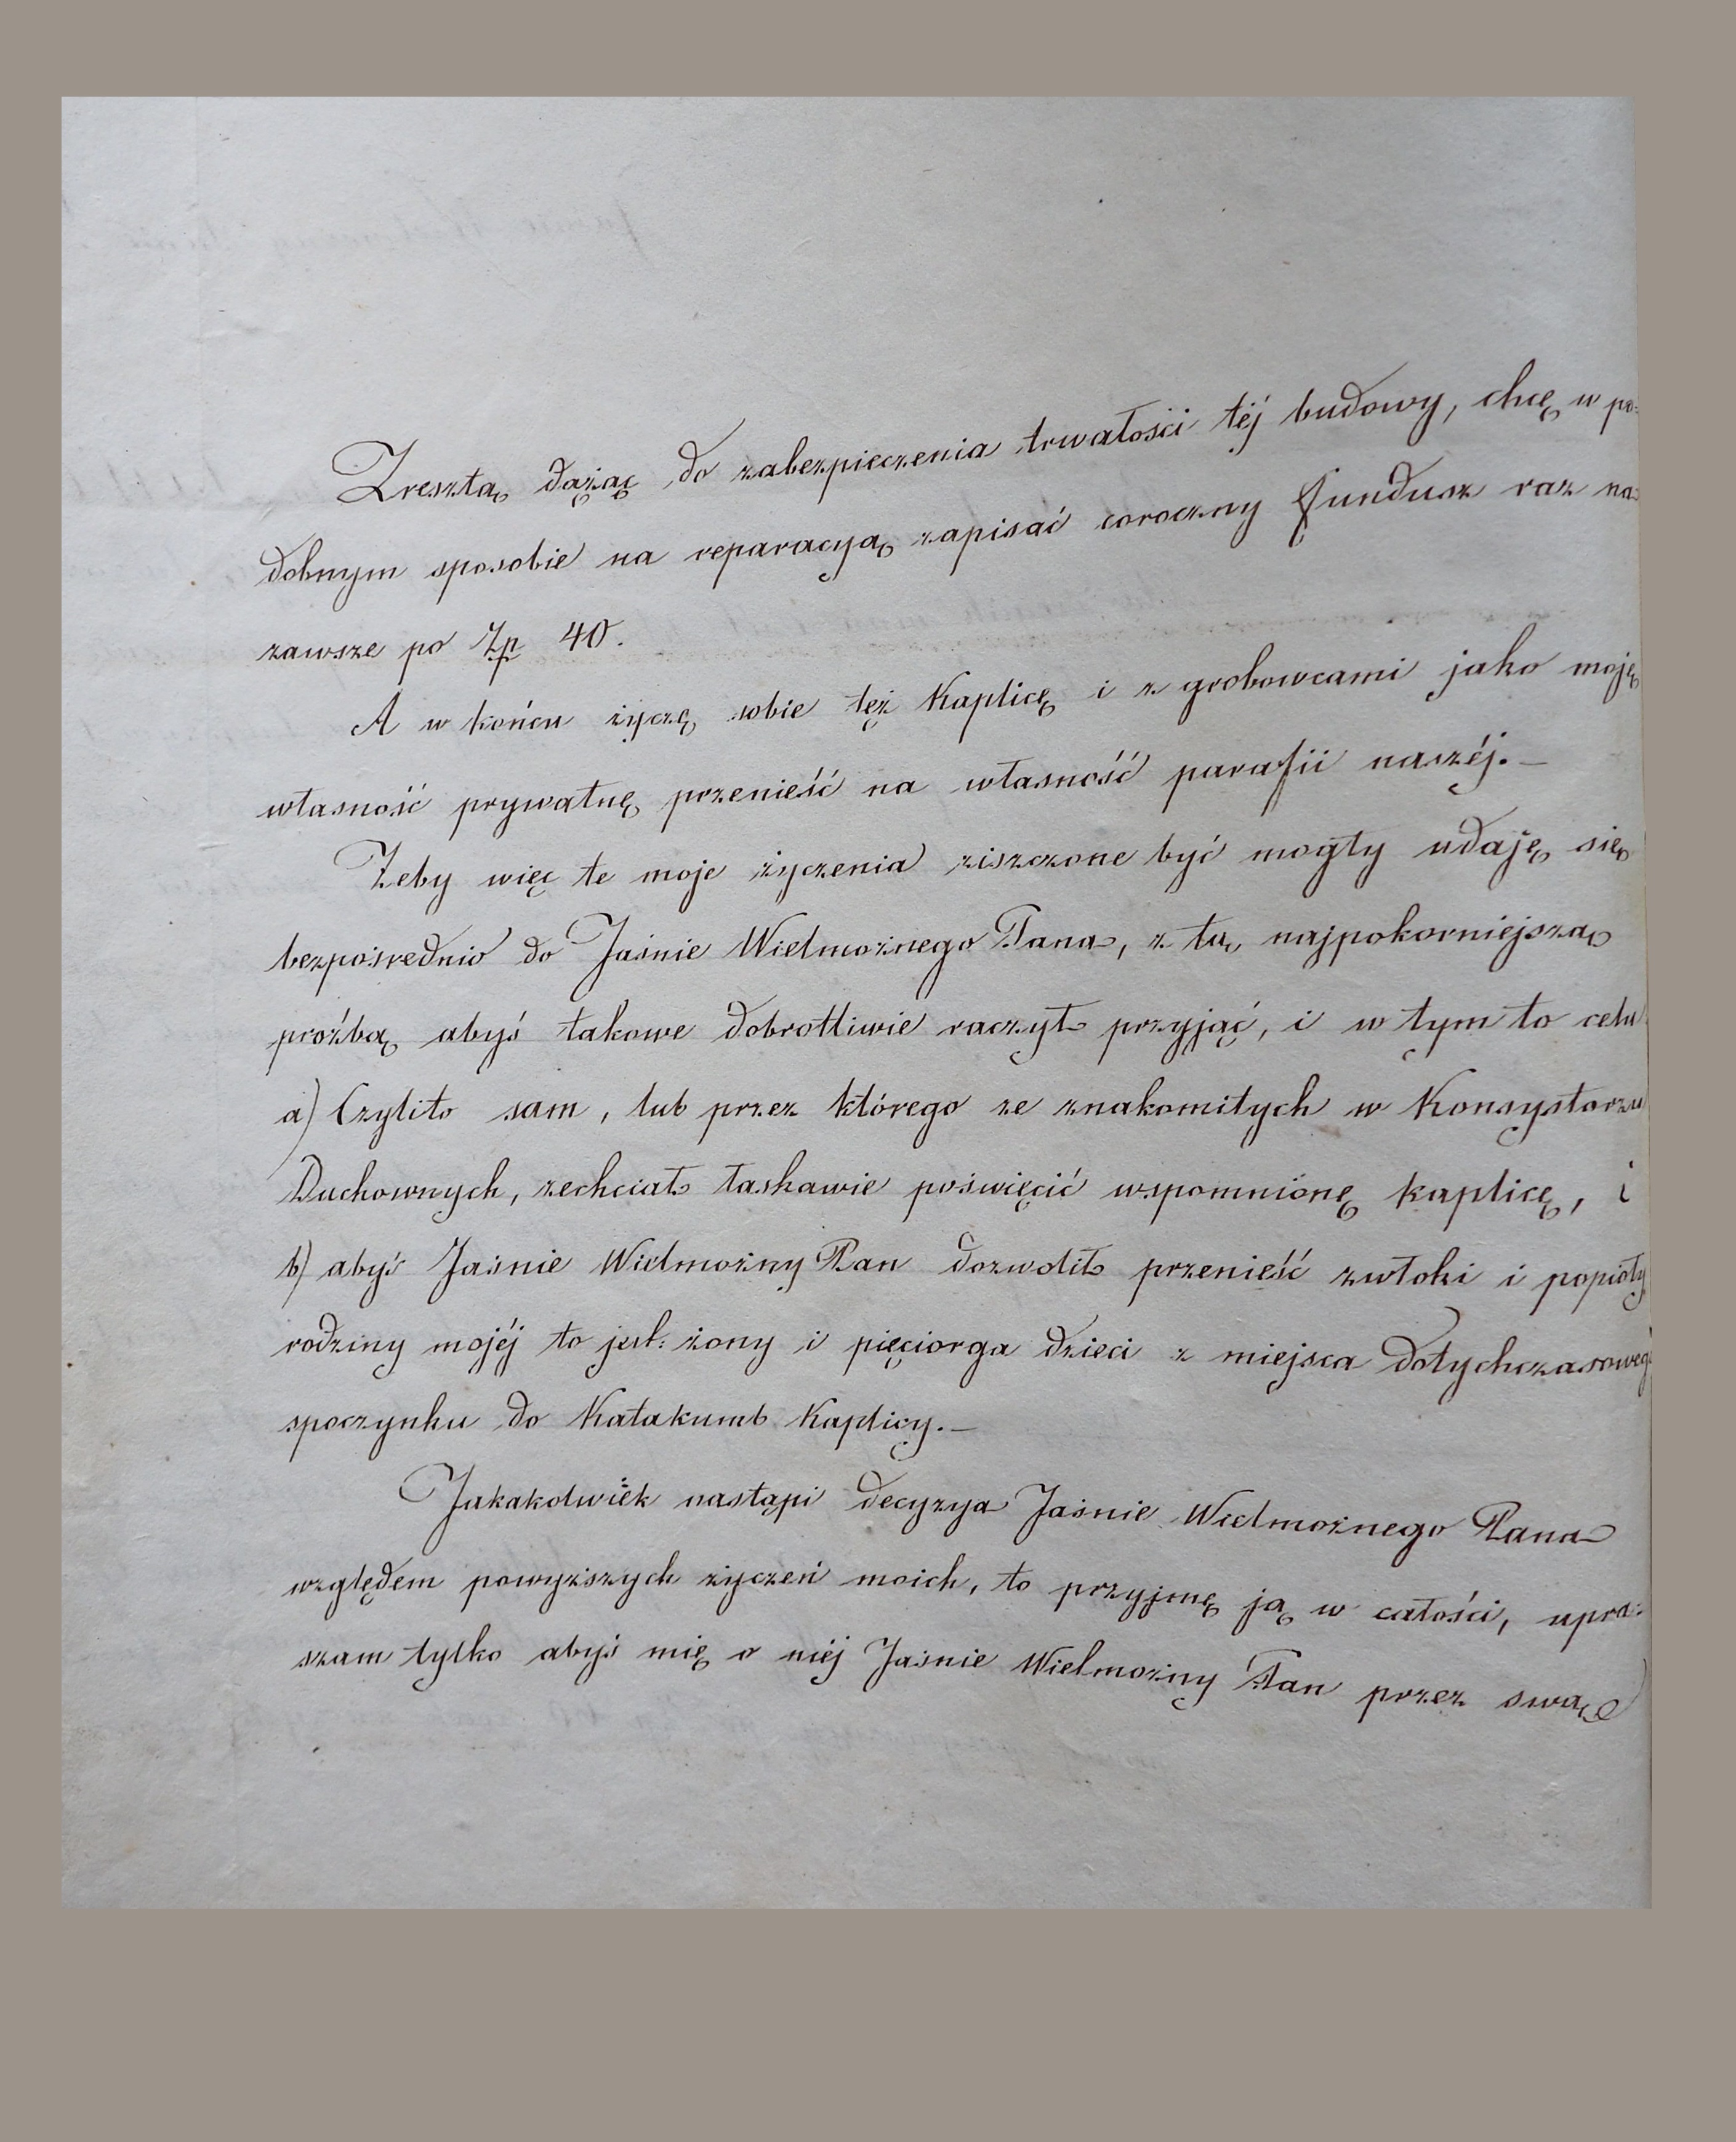 Zresztą dążąc do zabezpieczenia trwałości téj budowy, chcę w po=
dobnym sposobie na reparacyą zapisać coroczny fundusz raz na=
zawsze po Zp 40.
A w końcu życzę sobie też Kaplicę i z grobowcami jako moję
własność prywatnę przenieść na własność parafii naszéj.—
Żeby więc te moje życzenia ziszczone być mogły udaję się
bezpośrednio do Jaśnie Wielmożnego Pana, z tą najpokorniejszą
proźbą abyś takowe dobrotliwie raczył przyjąć, i w tym to celu
a) Czylito sam, lub przez którego ze znakomitych w Konsystorzu
Duchownych, zechciał łaskawie poświęcić wspomnionę kaplicę, i
b) abyś Jaśnie Wielmożny Pan dozwolił przenieść zwłoki i popioły
rodziny mojéj to jest: żony i pięciorga dzieci z miejsca dotychczasowego
spoczynku do Katakumb Kaplicy.—
Jakakolwiek nastąpi decyzya Jaśnie Wielmożnego Pana
względem powyższych życzeń moich, to przyjmę ją w całości, upra=
szam tylko abyś mię o niéj Jaśnie Wielmożny Pan przez swą